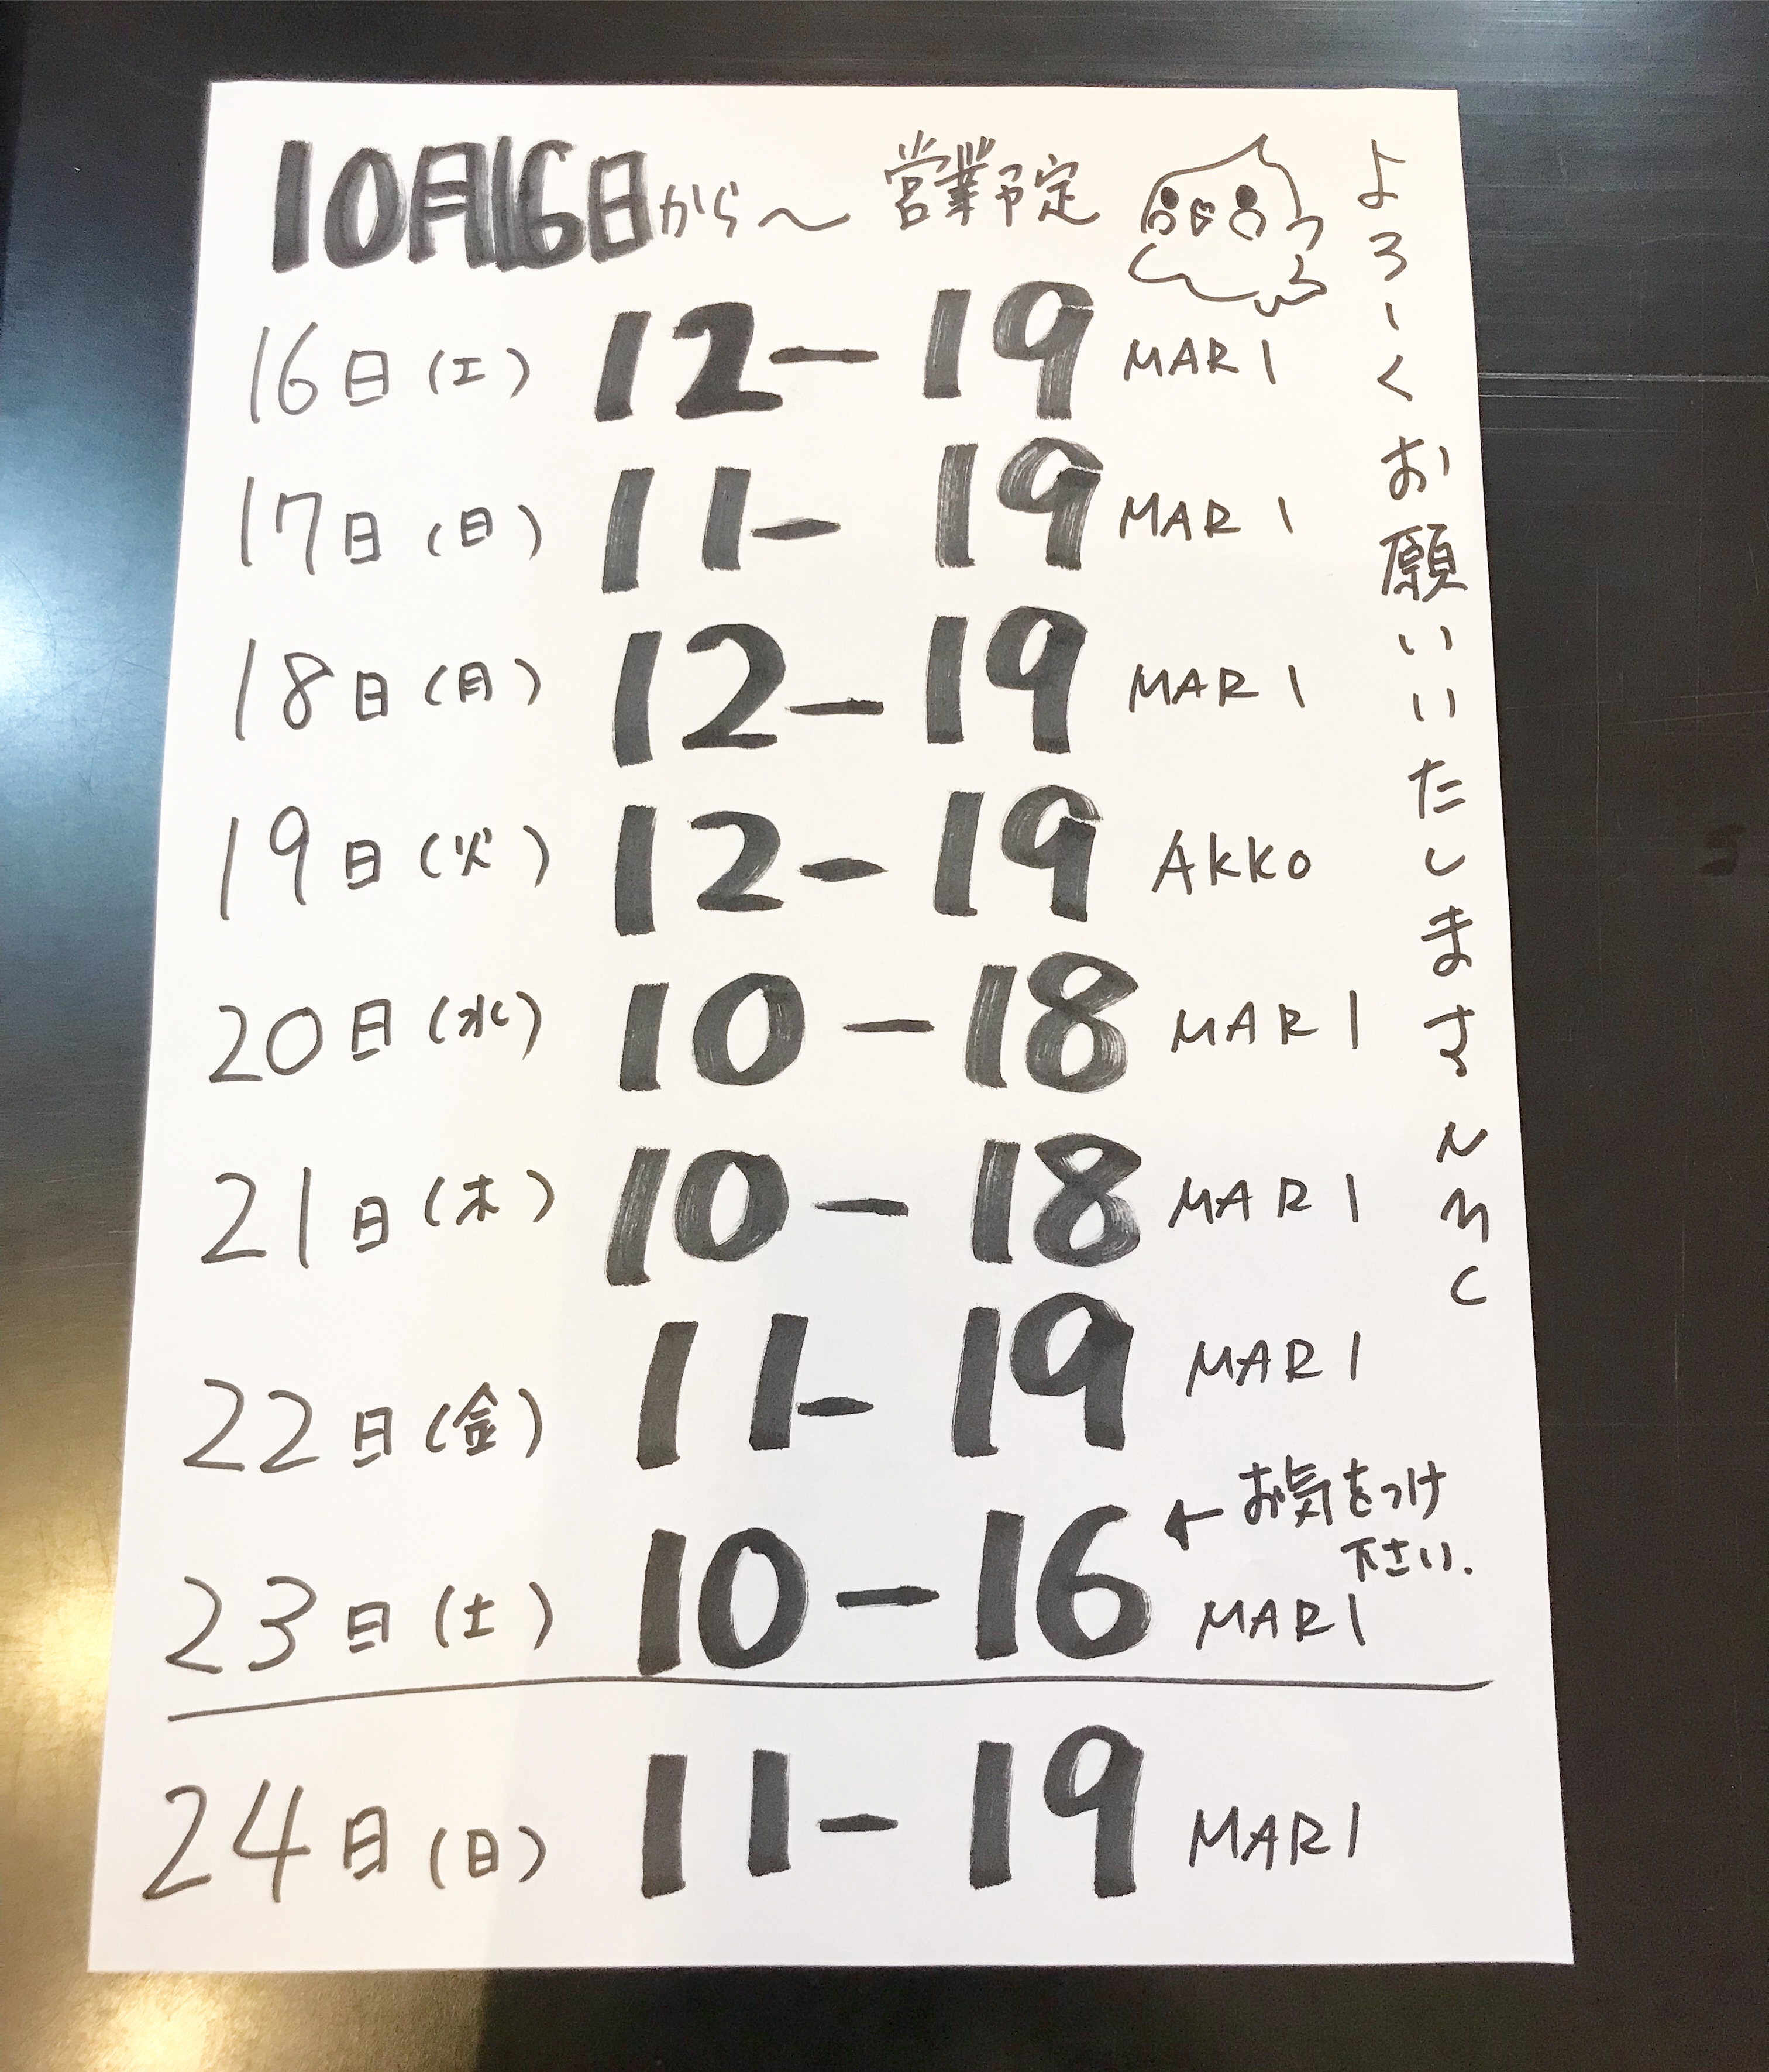 10月16日から〜 営業予定
16日(土) 12-19 MARI
17日(日) 11-19 MARI
18日(月) 12-19 MARI
19日(火) 12-19 AKKO
20日(水) 10-18 MARI
21日(木) 10-18 MARI
22日(金) 11-19 MARI
←お気をつけ
下さい.
23日(土) 10-16 MARI
24日(日) 11-19 MARI
よろーくお願いいたします。